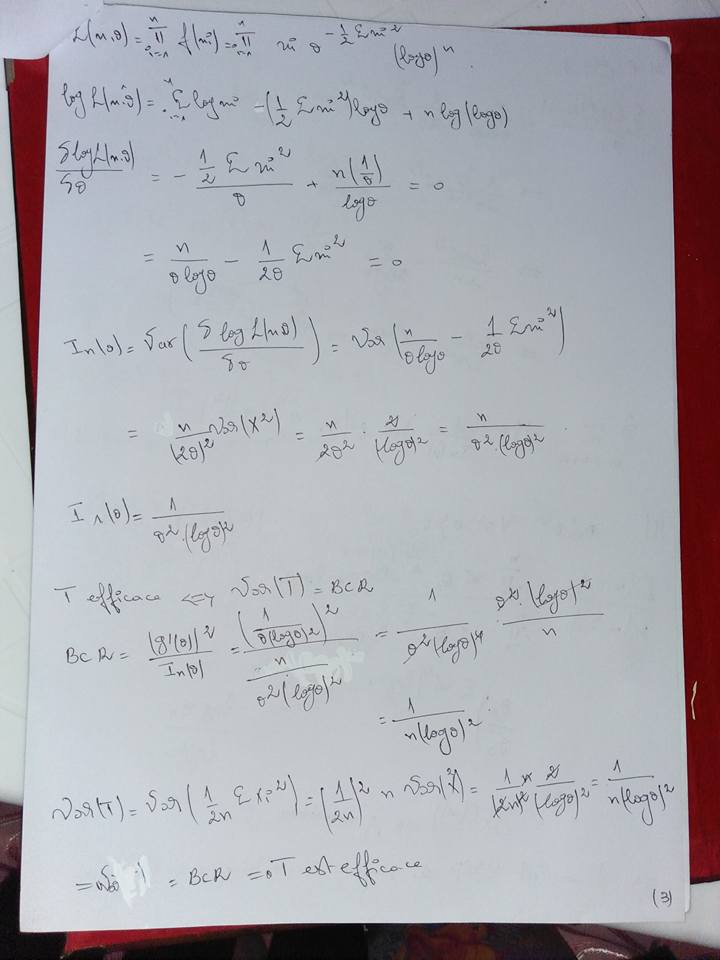 L(x,θ) = ∏_{i=1}^{n} f(xi) = ∏_{i=1}^{n} xi θ^{-1/2 Σxi²} (logθ)^n
log L(x.θ) = Σ_{i=1}^{n} log xi - (1/2 Σxi²) logθ + n log(logθ)
δlogL(x.θ)/δθ = - (1/2 Σxi²)/θ + n(1/θ)/logθ = 0
= n/(θ logθ) - 1/(2θ) Σxi² = 0
In(θ) = Var(δ log L(x,θ)/δθ) = Var(n/(θ logθ) - 1/(2θ) Σxi²)
= n/(2θ)² Var(X²) = n/(2θ²) · 2/(logθ)² = n/(θ².(logθ)²)
I1(θ) = 1/(θ².(logθ)²)
T efficace <=> Var(T) = BCR
BCR = (g'(θ))²/In(θ) = (1/(θ(logθ)²))²/(n/(θ²(logθ)²)) = 1/(θ²(logθ)⁴) · θ².(logθ)²/n
= 1/(n(logθ)²)
Var(T) = Var(1/(2n) Σxi²) = (1/(2n))² n Var(X²) = 1/(2n)² n 2/(logθ)² = 1/(n(logθ)²)
= BCR => T est efficace
(3)